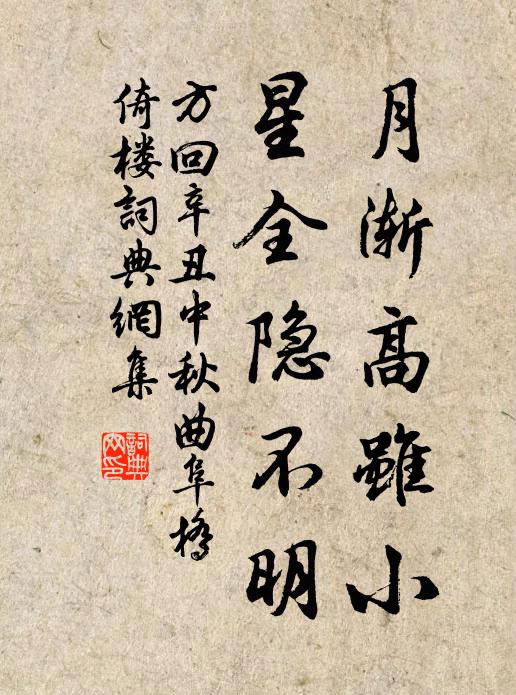 月渐高雖小
星全隐不明
方回辛丑中秋曲阜橋
倚楼詞典網集
詞典网印